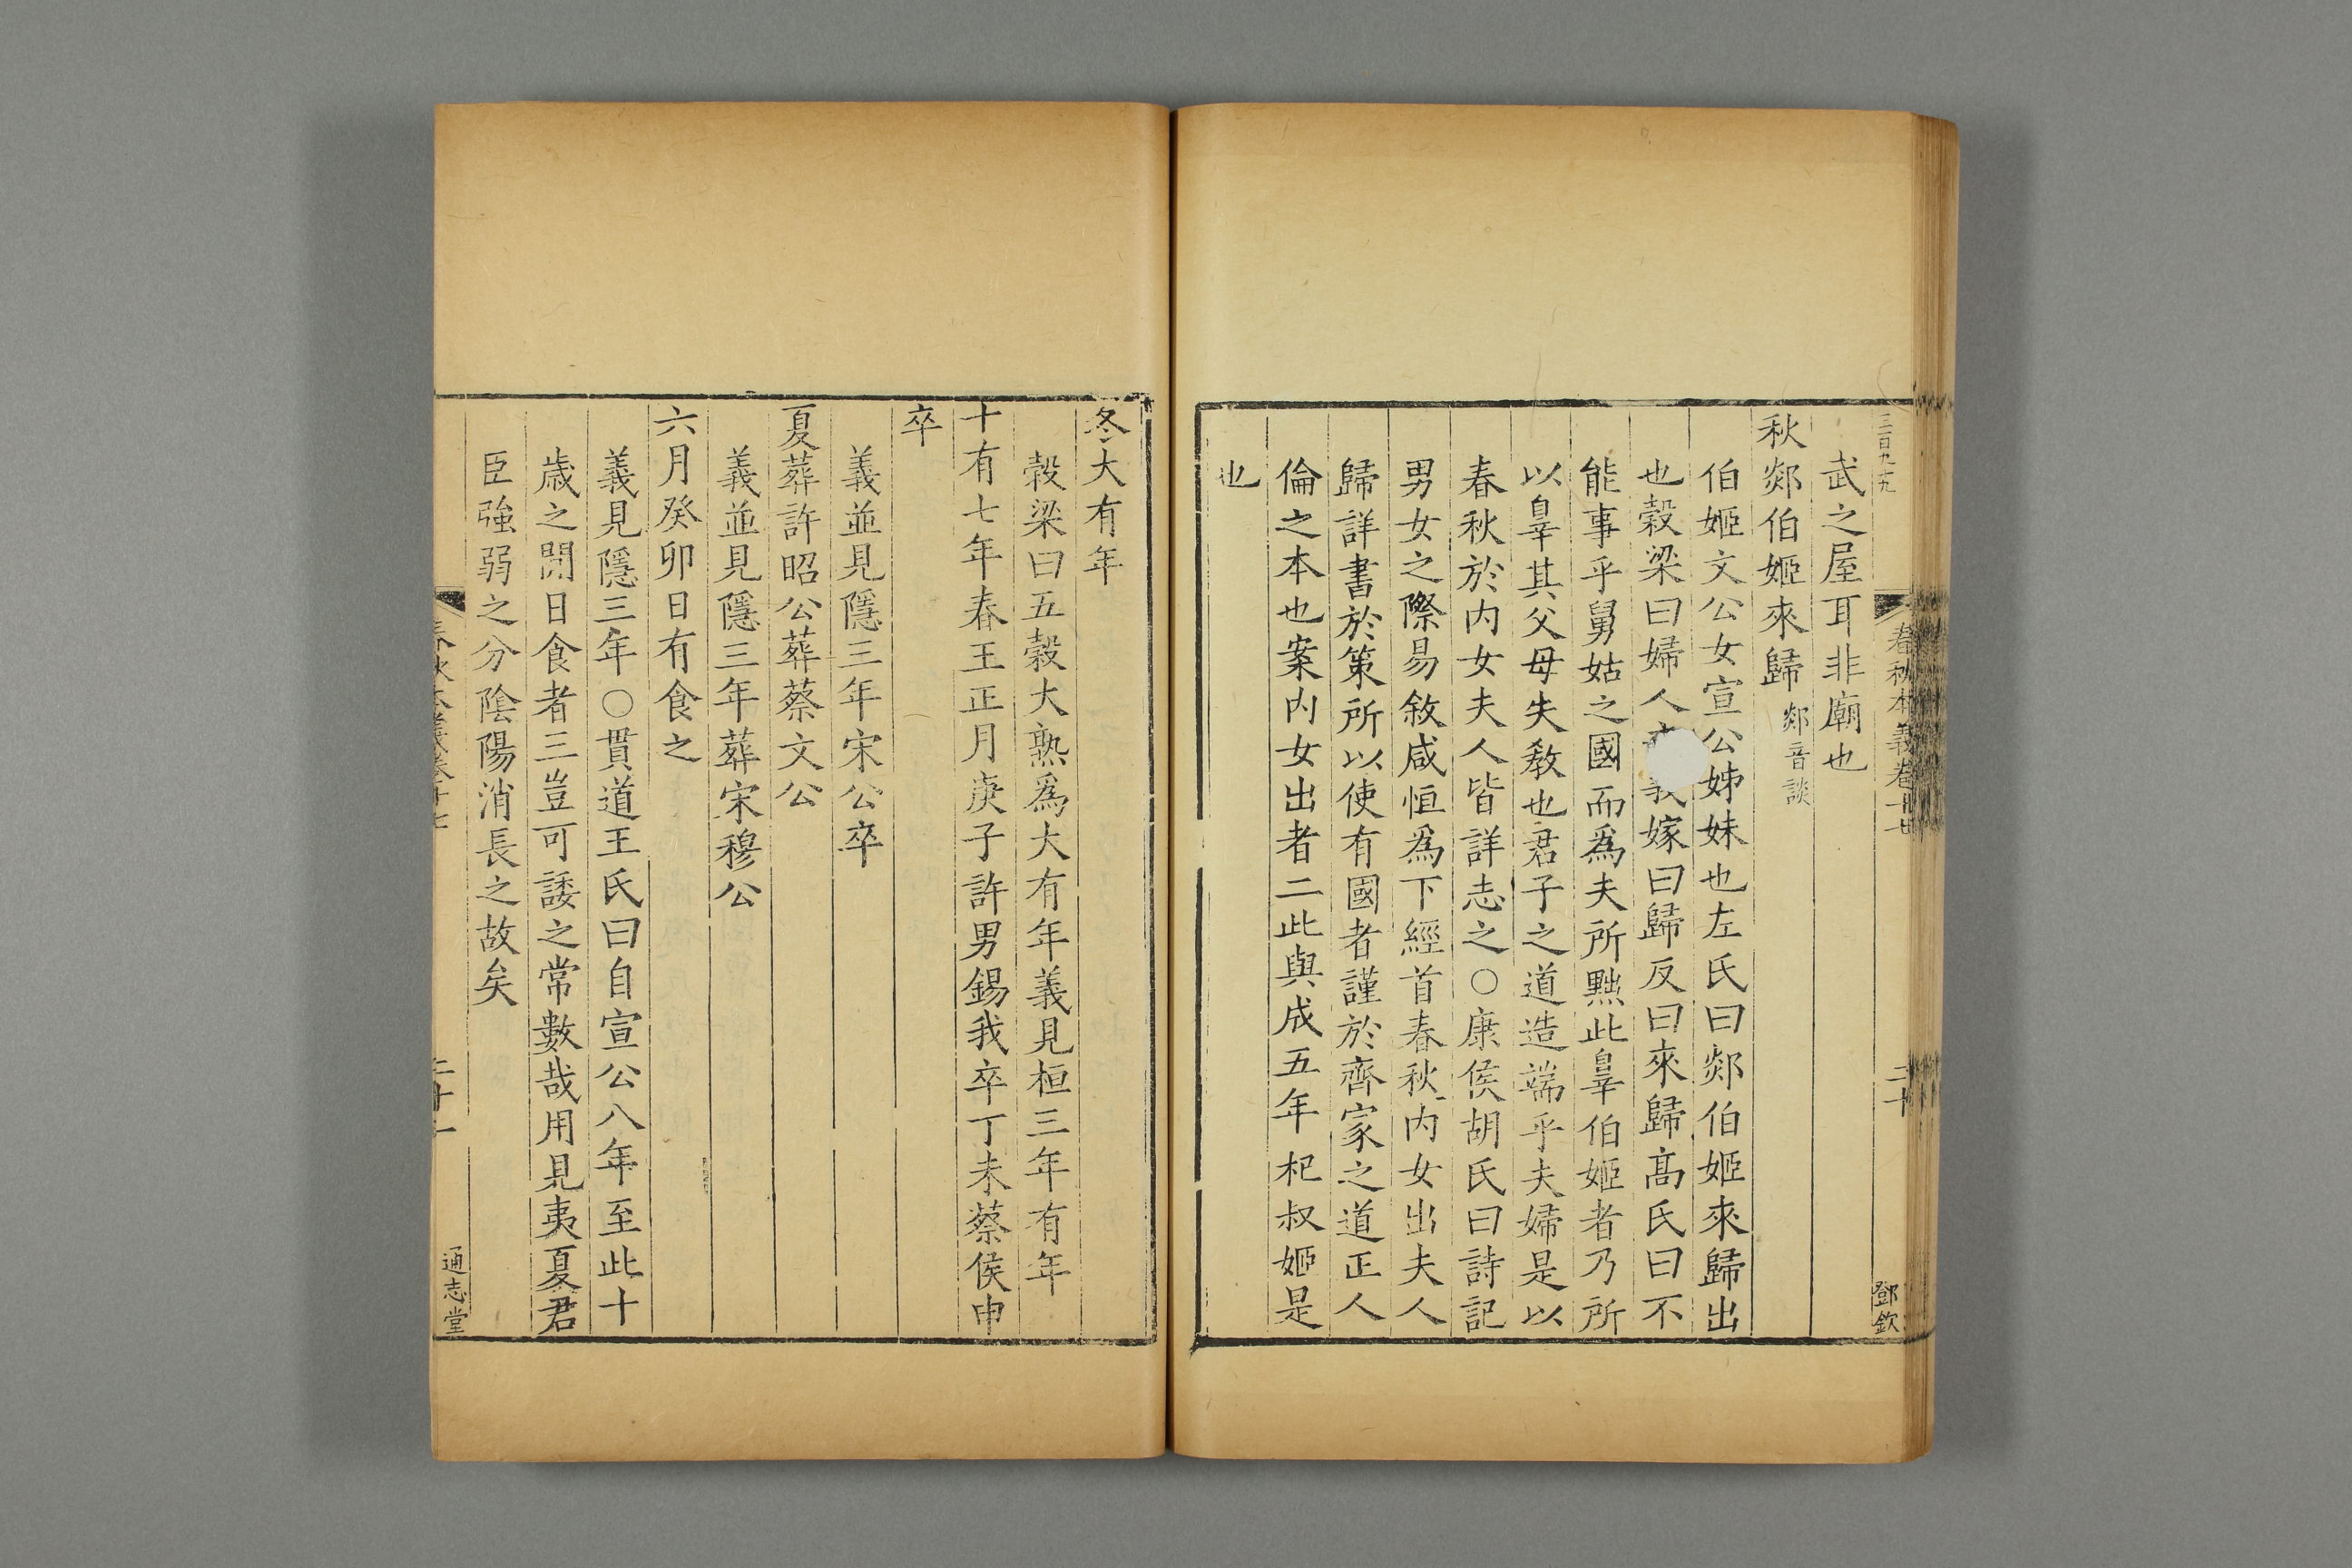 春秋本義卷十七
二十
鄧欽
武之屋耳非廟也
秋郯伯姬來歸郯音談
伯姬文公女宣公姊妹也左氏曰郯伯姬來歸出
也穀梁曰婦人義嫁曰歸反曰來歸髙氏曰不
能事乎舅姑之國而爲夫所黜此辠伯姬者乃所
以辠其父母失敎也君子之道造端乎夫婦是以
春秋於内女夫人皆詳志之○康侯胡氏曰詩記
男女之際易敘咸恒爲下經首春秋内女出夫人
歸詳書於策所以使有國者謹於齊家之道正人
倫之本也案内女出者二此與成五年杞叔姬是
也
冬大有年
穀梁曰五穀大熟爲大有年義見桓三年有年
十有七年春王正月庚子許男錫我卒丁未蔡侯申
卒
義並見隱三年宋公卒
夏葬許昭公葬蔡文公
義並見隱三年葬宋穆公
六月癸卯日有食之
義見隱三年○貫道王氏曰自宣公八年至此十
歲之閒日食者三豈可諉之常數哉用見夷夏君
臣強弱之分陰陽消長之故矣
春秋本義卷十七
二十一
通志堂